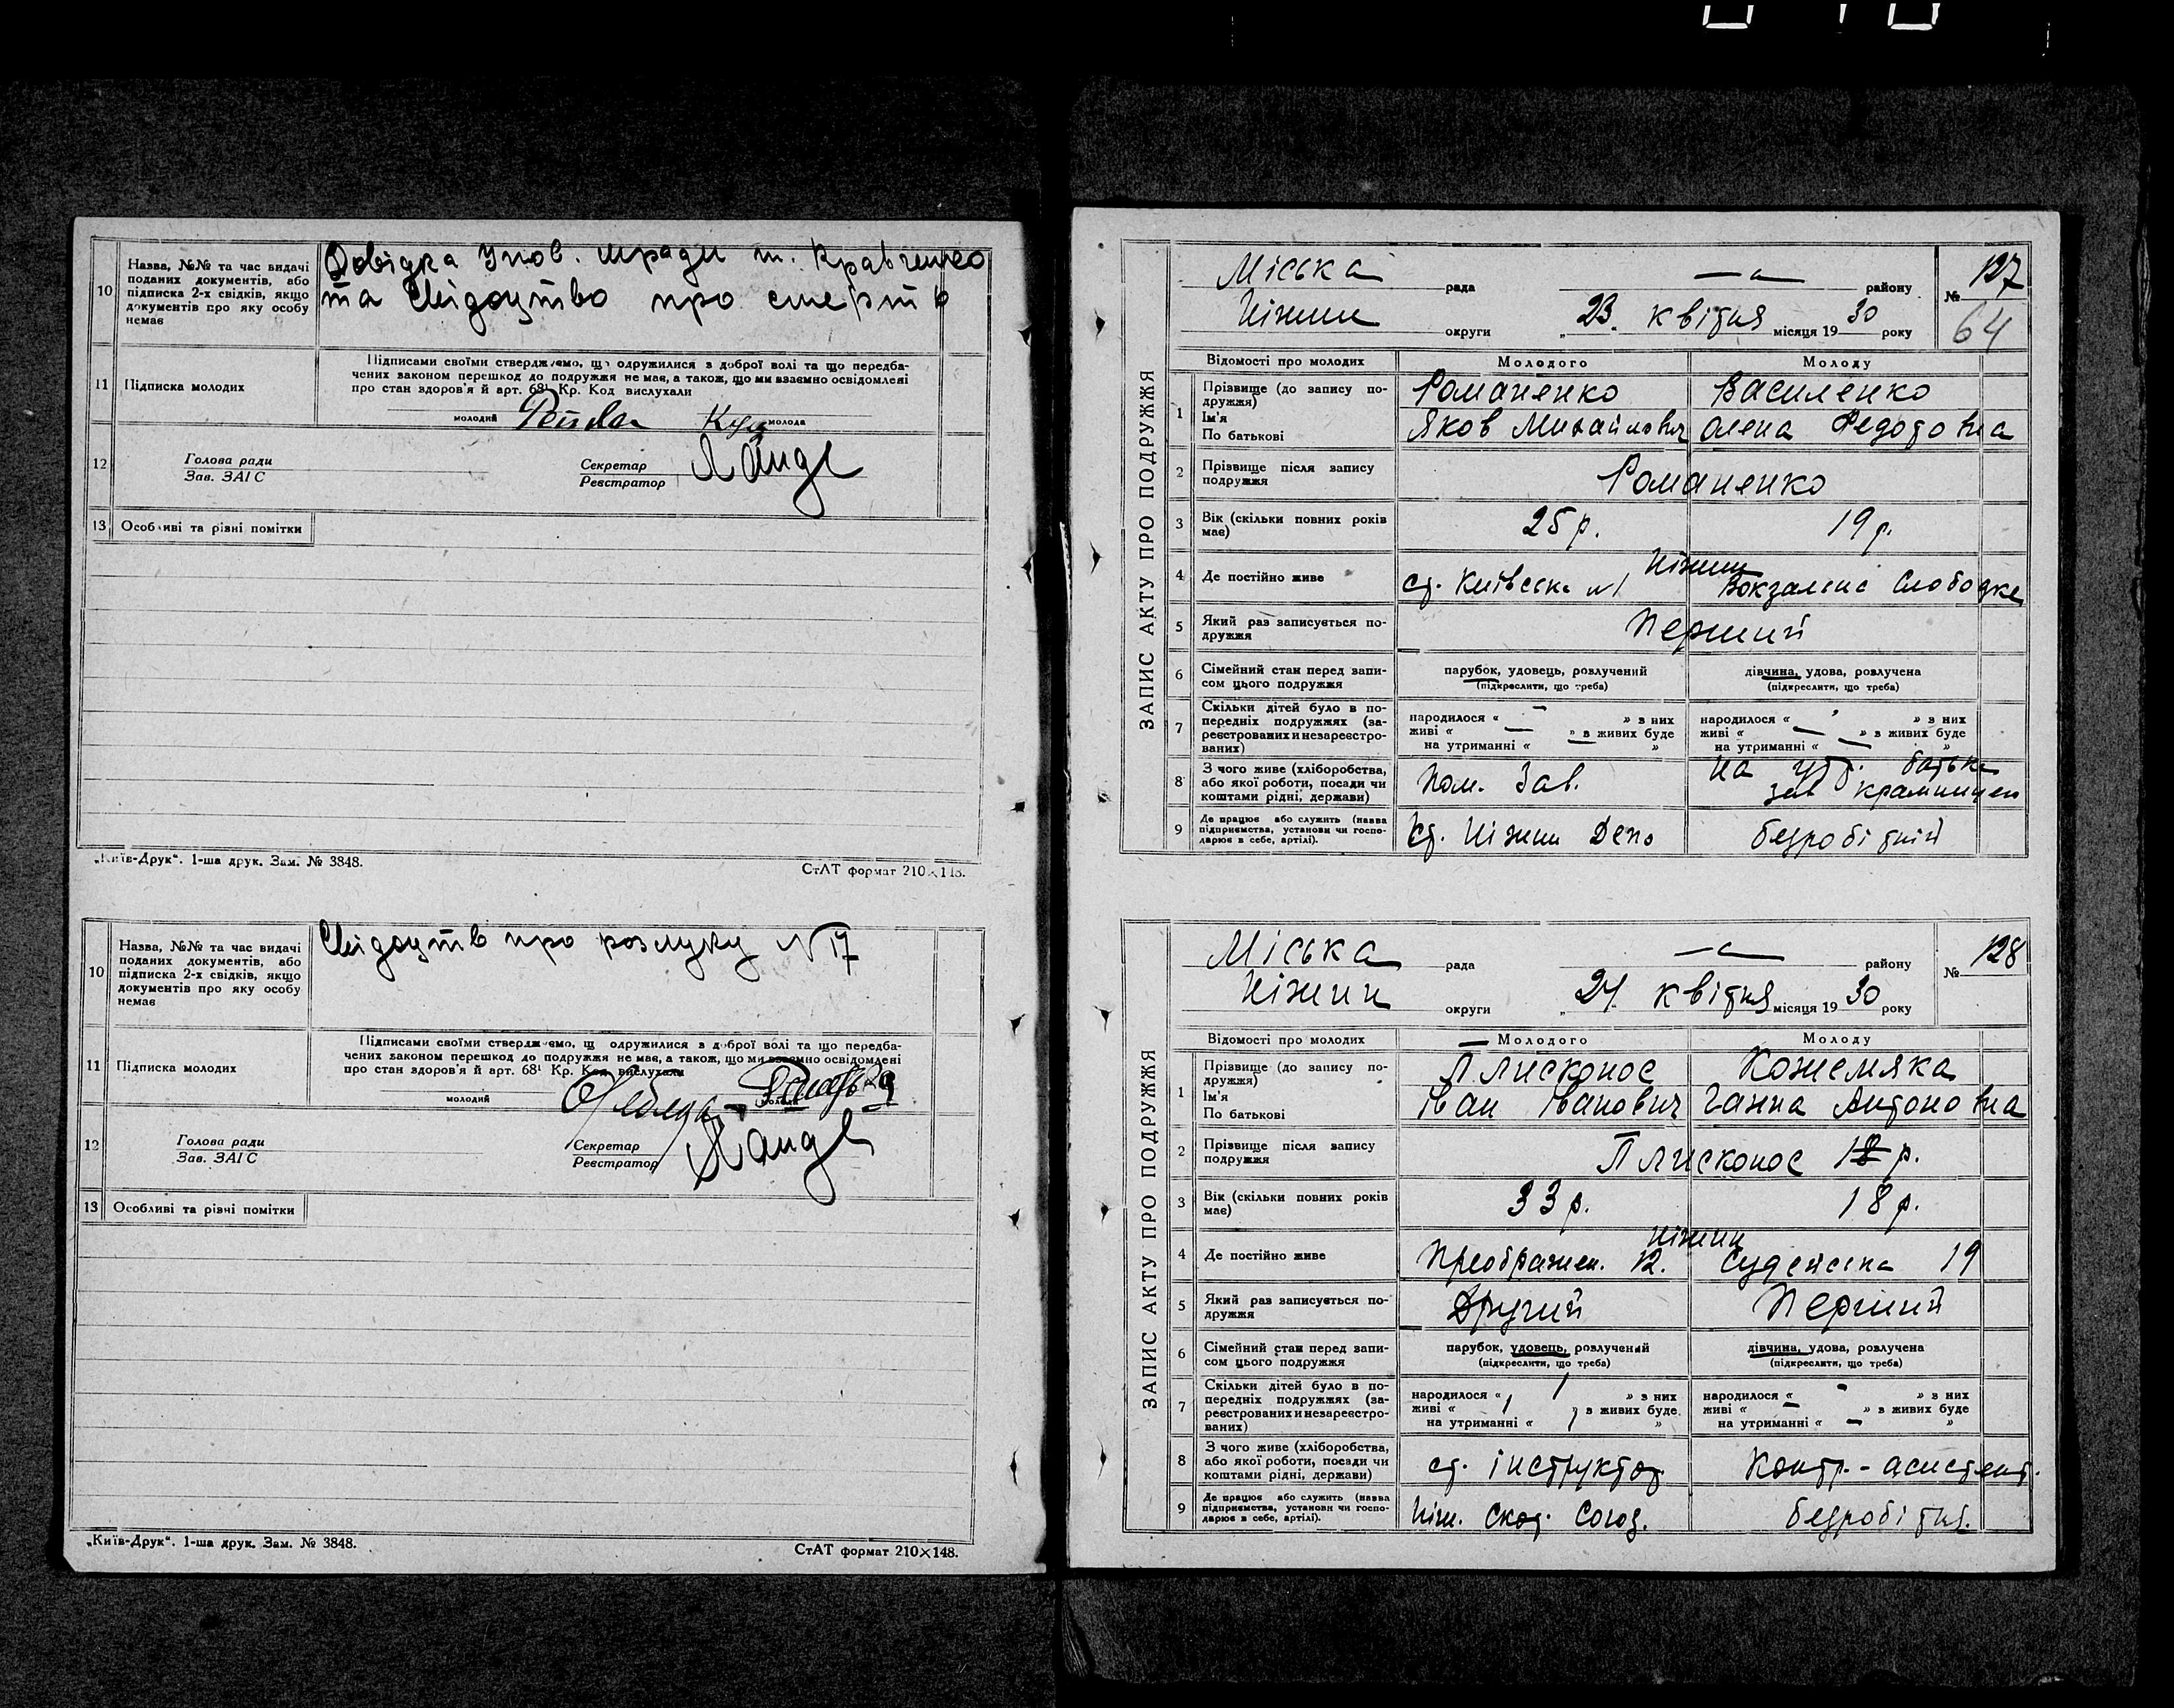 10
Назва, №№ та час видачі
поданих документів, або
підписка 2-х свідків, якщо
документів про яку особу
немає
Довідка Упов. мради т. Кравченко
та Свідоцтво про смерть
11
Підписка молодих
Підписами своїми стверджуємо, що одружилися з доброї волі та що передба-
чених законом перешкод до подружжя не має, а також, що ми взаємно освідомлені
про стан здоров'я й арт. 68¹ Кр. Код вислухали
молодий
молода
12
Голова ради
Зав. ЗАГС
Секретар
Реєстратор
13 Особливі та рівні помітки
„Київ-Друк“. 1-ша друк. Зам. № 3848.
СтАТ формат 210×148.
10
Назва, №№ та час видачі
поданих документів, або
підписка 2-х свідків, якщо
документів про яку особу
немає
Свідоцтв про розлуку N 17
11
Підписка молодих
Підписами своїми стверджуємо, щ одружилися з доброї волі та що передба-
чених законом перешкод до подружжя не має, а також, що ми взаємно освідомлені
про стан здоров'я й арт. 68¹ Кр. Код вислухали
молодий
молода
12
Голова ради
Зав. ЗАГС
Секретар
Реєстратор
13 Особливі та рівні помітки
„Київ-Друк“. 1-ша друк. Зам. № 3848.
СтАТ формат 210×148.
ЗАПИС АКТУ ПРО ПОДРУЖЖЯ
Міська рада — району № 127
Ніжин округи „23 квітня місяця 1930 року 64
Відомості про молодих Молодого Молоду
1
Прізвище (до запису по-
дружжя) Романенко Василенко
Ім'я
По батькові Яков Михайлович Олена Федотовна
2 Прізвище після запису
подружжя Романенко
3 Вік (скільки повних років
має) 25 р. 19 р.
Ніжин
4 Де постійно живе ст. Київська N1 Вокзальна Слободка
5 Який раз записується по-
дружжя Перший
6 Сімейний стан перед запи-
сом цього подружжя
парубок, удовець, розлучений
(підкреслити, що треба)
дівчина, удова, розлучена
(підкреслити, що треба)
7
Скільки дітей було в по-
передніх подружжях (за-
реєстрованих и незареєстро-
ваних)
народилося « — » з них
живі « — » з живих буде
на утриманні « »
народилося « — » з них
живі « — » з живих буде
на утриманні « — »
8
З чого живе (хліборобства,
або якої роботи, посади чи
коштами рідні, держави)
Пом. Зав.
на утр. батька
зав крамницею
9
Де працює або служить (назва
підприємства, установи чи госпо-
дарює в себе, артілі).
ст. Ніжин Депо
безробітній
ЗАПИС АКТУ ПРО ПОДРУЖЖЯ
Міська рада — району № 128
Ніжин округи „24 квітня місяця 1930 року
Відомості про молодих Молодого Молоду
1
Прізвище (до запису по-
дружжя) Плисконос Кожемяка
Ім'я
По батькові Іван Іванович Ганна Антоновна
2 Прізвище після запису
подружжя Плисконос 18 р.
3 Вік (скільки повних років
має) 33 р. 18 р.
Ніжин
4 Де постійно живе Преображен. 12. Судейська 19
5 Який раз записується по-
дружжя Другий Перший
6 Сімейний стан перед запи-
сом цього подружжя
парубок, удовець, розлучений
(підкреслити, що треба)
дівчина, удова, розлучена
(підкреслити, що треба)
7
Скільки дітей було в по-
передніх подружжях (за-
реєстрованих и незареєстро-
ваних)
народилося « 1 » з них
живі « 1 » з живих буде
на утриманні « 1 »
народилося « — » з них
живі « — » з живих буде
на утриманні « — »
8
З чого живе (хліборобства,
або якої роботи, посади чи
коштами рідні, держави)
ст. інструктор
Контр.-асистент.
9
Де працює або служить (назва
підприємства, установи чи госпо-
дарює в себе, артілі).
Ніж. Скот. Союз.
безробітня.